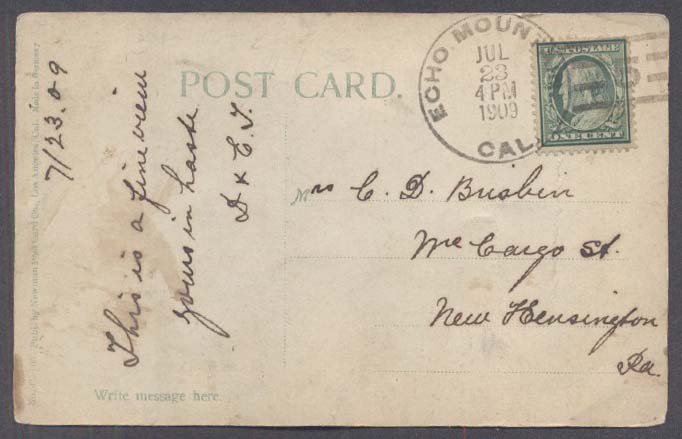 POST CARD.
ECHO MOUNT
JUL
23
4 PM
1909
CAL.
U.S. POSTAGE
ONE CENT
7/23.09
This is a fine view
yours in haste
D & E. T.
Mrs C. D. Brisbin
McCargo St.
New Kensington
Pa.
Write message here.
Publ. by Newman Post Card Co., Los Angeles, Cal. Made in Germany